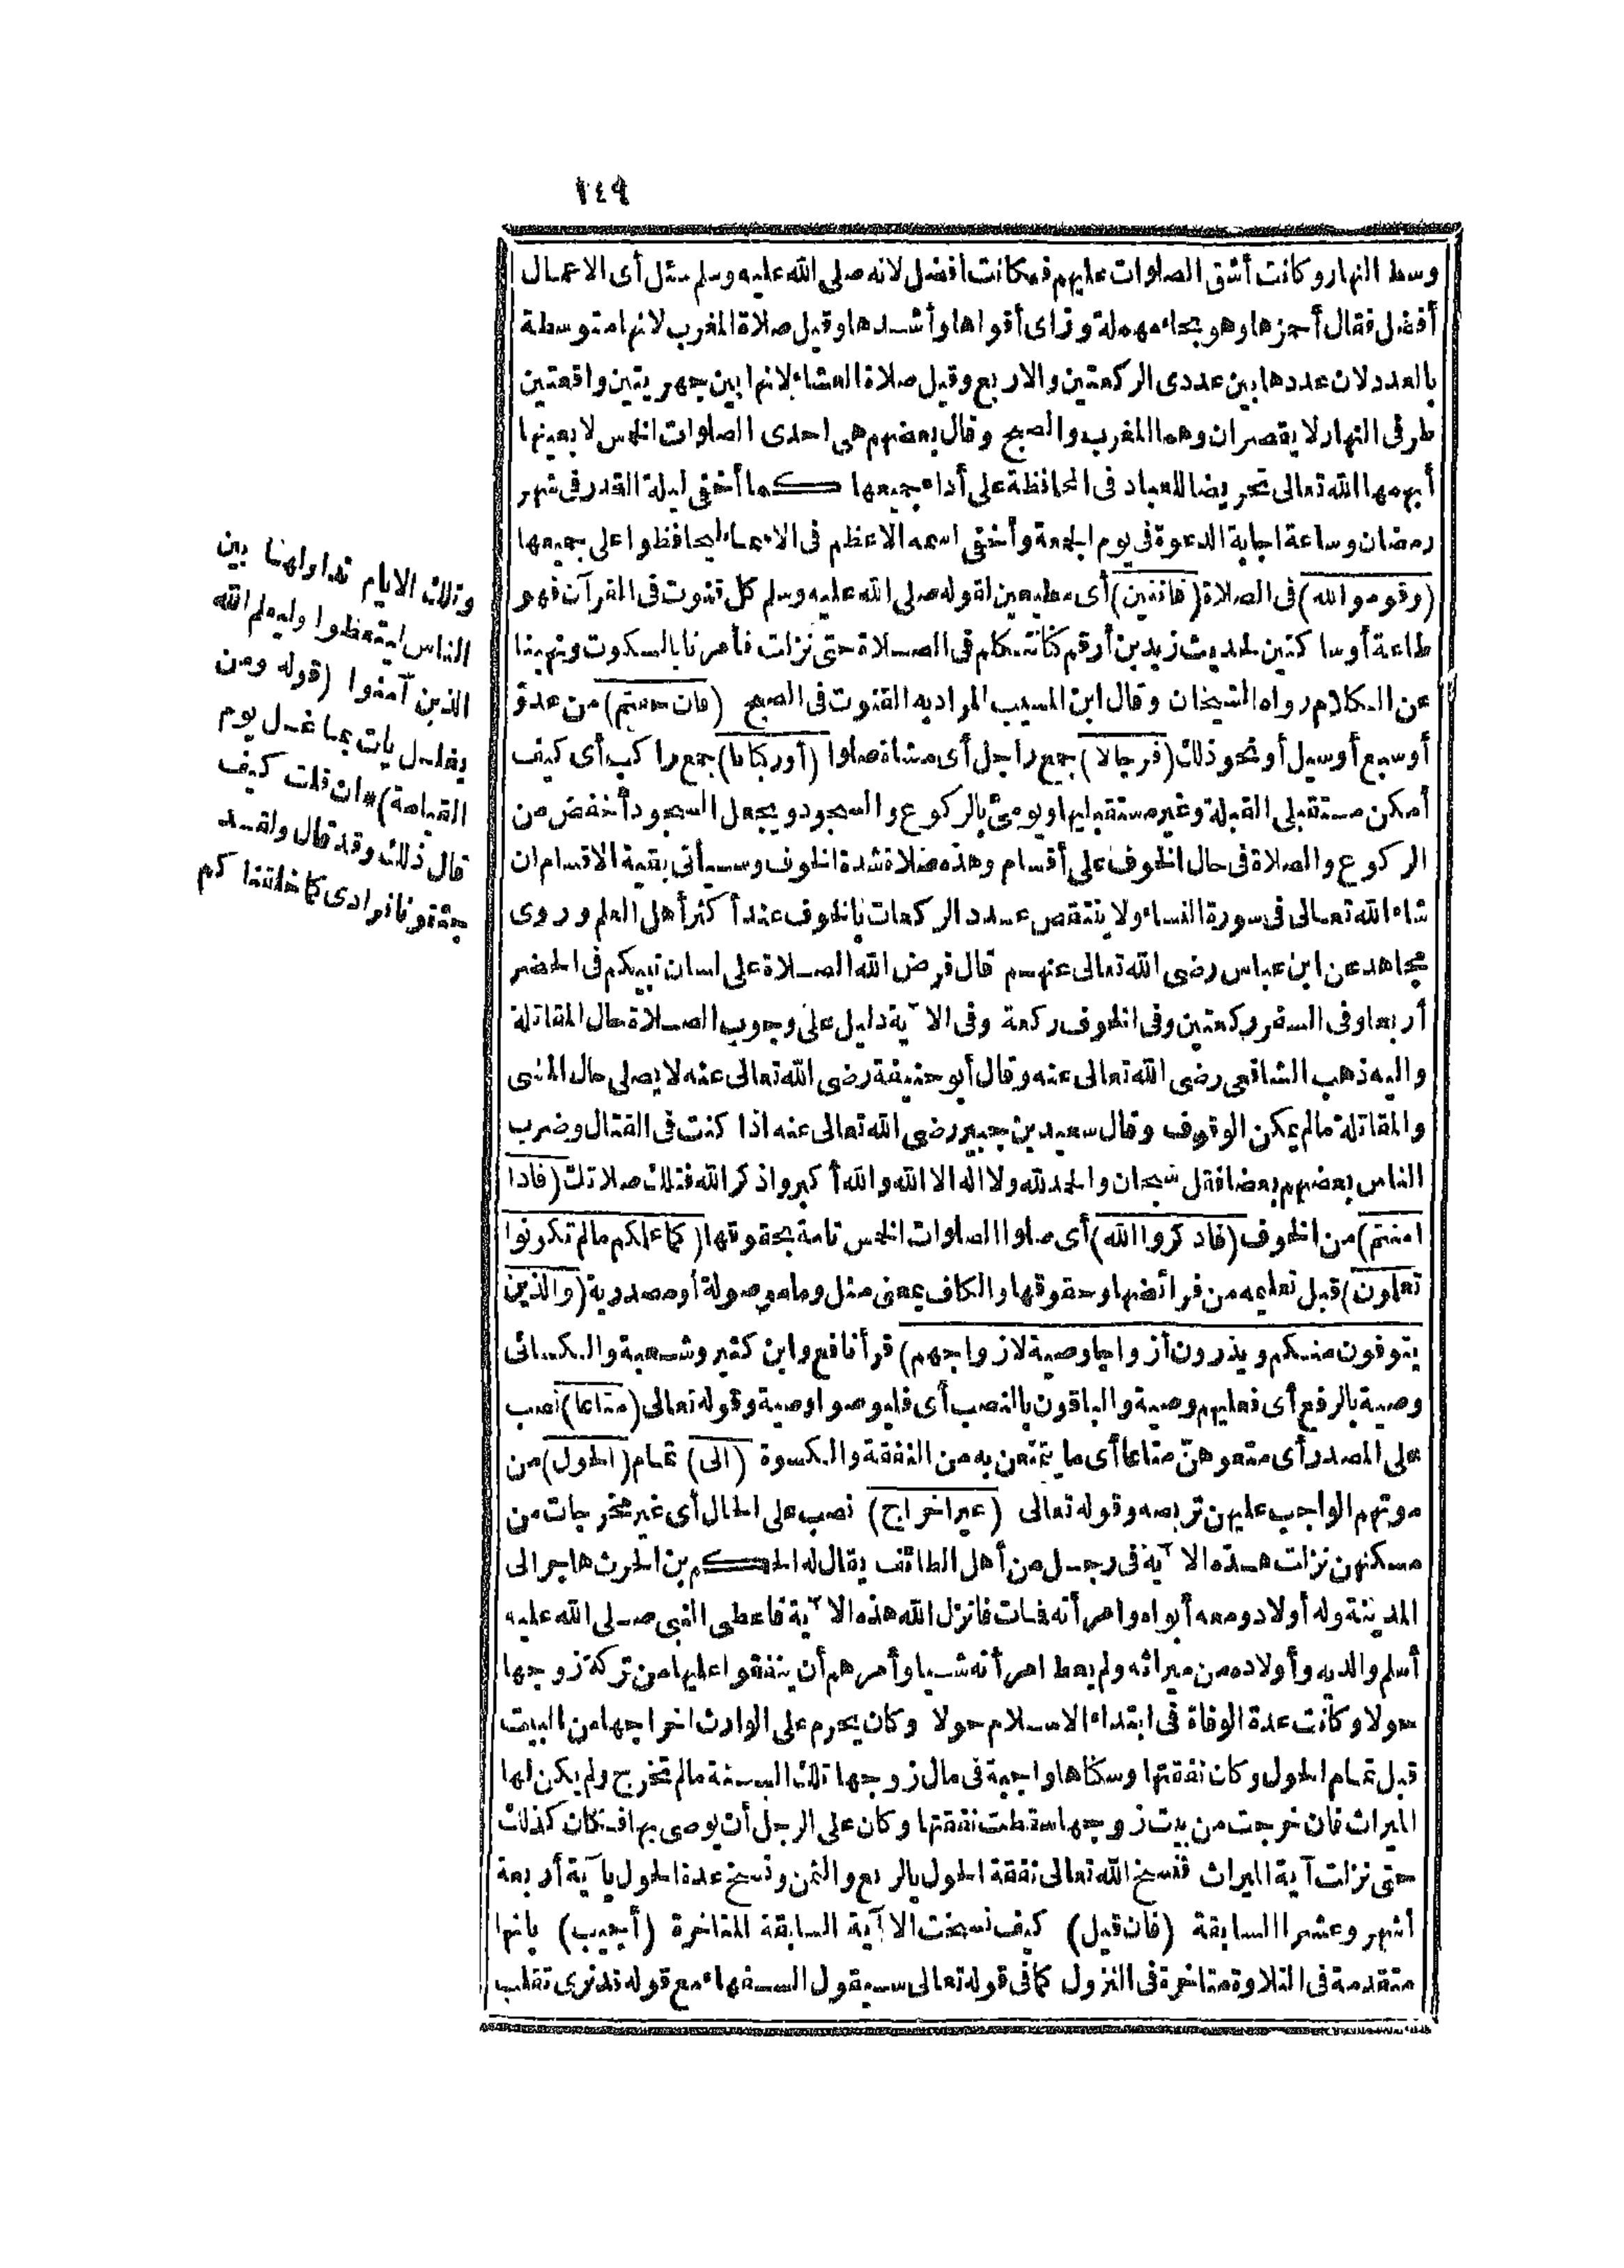 ١٤٩
وسط النهار وكانت أشق الصلوات عليهم فكانت أفضل لانه صلى الله عليه وسلم سئل أى الاعمال
أفضل فقال أحمزها وهو بحاء مهملة وزاى أقواها وأشدها وقيل صلاة المغرب لانها متوسطة
بالعدد لان عددها بين عددى الركعتين والاربع وقيل صلاة العشاء لانها بين جهريتين واقعتين
طرفى النهار لا يقصران وهما المغرب والصبح وقال بعضهم هى احدى الصلوات الخمس لا بعينها
أبهمها الله تعالى تحريضا للعباد فى المحافظة على أداء جميعها كما أخفى ليلة القدر فى شهر
رمضان وساعة اجابة الدعوة فى يوم الجمعة وأخفى اسمه الاعظم فى الاسماء ليحافظوا على جميعها
(وقوموا لله) فى الصلاة (قانتين) أى مطيعين لقوله صلى الله عليه وسلم كل قنوت فى القرآن فهو
طاعة أو ساكتين لحديث زيد بن أرقم كنا نتكلم فى الصلاة حتى نزلت فأمرنا بالسكوت ونهينا
عن الكلام رواه الشيخان وقال ابن المسيب المراد به القنوت فى الصبح (فان خفتم) من عدوّ
أو سبع أو سيل أو نحو ذلك (فرجالا) جمع راجل أى مشاة صلوا (أو ركبانا) جمع راكب أى كيف
أمكن مستقبلى القبلة وغير مستقبليها ويومئ بالركوع والسجود ويجعل السجود أخفض من
الركوع والصلاة فى حال الخوف على أقسام وهذه صلاة شدة الخوف وسيأتى بقية الاقسام ان
شاء الله تعالى فى سورة النساء ولا ينتقص عدد الركعات بالخوف عند أكثر أهل العلم وروى
مجاهد عن ابن عباس رضى الله تعالى عنهم قال فرض الله الصلاة على لسان نبيكم فى الحضر
أربعا وفى السفر ركعتين وفى الخوف ركعة وفى الآية دليل على وجوب الصلاة حال المقاتلة
واليه ذهب الشافعى رضى الله تعالى عنه وقال أبو حنيفة رضى الله تعالى عنه لا يصلى حال المشى
والمقاتلة ما لم يمكن الوقوف وقال سعيد بن جبير رضى الله تعالى عنه اذا كنت فى القتال وضرب
الناس بعضهم بعضا فقل سبحان والحمد لله ولا اله الا الله والله أكبر واذكر الله فتلك صلاتك (فاذا
أمنتم) من الخوف (فاذكروا الله) أى صلوا الصلوات الخمس تامة بحقوقها (كما علمكم ما لم تكونوا
تعلون) قبل تعليمه من فرائضها وحقوقها والكاف بمعنى مثل وما موصولة أو مصدرية (والذين
يتوفون منكم ويذرون أزواجا وصية لازواجهم) قرأ نافع وابن كثير وشعبة والكسائى
وصية بالرفع أى فعليهم وصية والباقون بالنصب أى فليوصوا وصية وقوله تعالى (متاعا) نصب
على المصدر أى متعوهنّ متاعا أى ما يتمتعن به من النفقة والكسوة (الى) تمام (الحول) من
موتهم الواجب عليهن تربصه وقوله تعالى (غير اخراج) نصب على الحال أى غير مخرجات من
مسكنهن نزلت هذه الآية فى رجل من أهل الطائف يقال له الحكم بن الحرث هاجر الى
المدينة وله أولاد ومعه أبواه وامرأته فمات فانزل الله هذه الآية فاعطى النبى صلى الله عليه
أسلم والديه وأولاده من ميراثه ولم يعط امرأته شيا وأمرهم أن ينفقوا عليها من تركة زوجها
حولا وكانت عدة الوفاة فى ابتداء الاسلام حولا وكان يحرم على الوارث اخراجها من البيت
قبل تمام الحول وكان نفقتها وسكناها واجبة فى مال زوجها تلك السنة ما لم تخرج ولم يكن لها
الميراث فان خرجت من بيت زوجها سقطت نفقتها وكان على الرجل أن يوصى بها فكان كذلك
حتى نزلت آية الميراث فنسخ الله تعالى نفقة الحول بالربع والثمن ونسخ عدة الحول بآية أربعة
أشهر وعشرا السابقة (فان قيل) كيف نسخت الآية السابقة المتاخرة (أجيب) بانها
متقدمة فى التلاوة متاخرة فى النزول كما فى قوله تعالى سيقول السفهاء مع قوله قد نرى تقلب
وتلك الايام نداولها بين
الناس ليتعظوا وليعلم الله
الذين آمنوا (قوله ومن
يغلل يات بما غل يوم
القيامة) * ان قلت كيف
قال ذلك وقد قال ولقد
جئتمونا فرادى كما خلقناكم